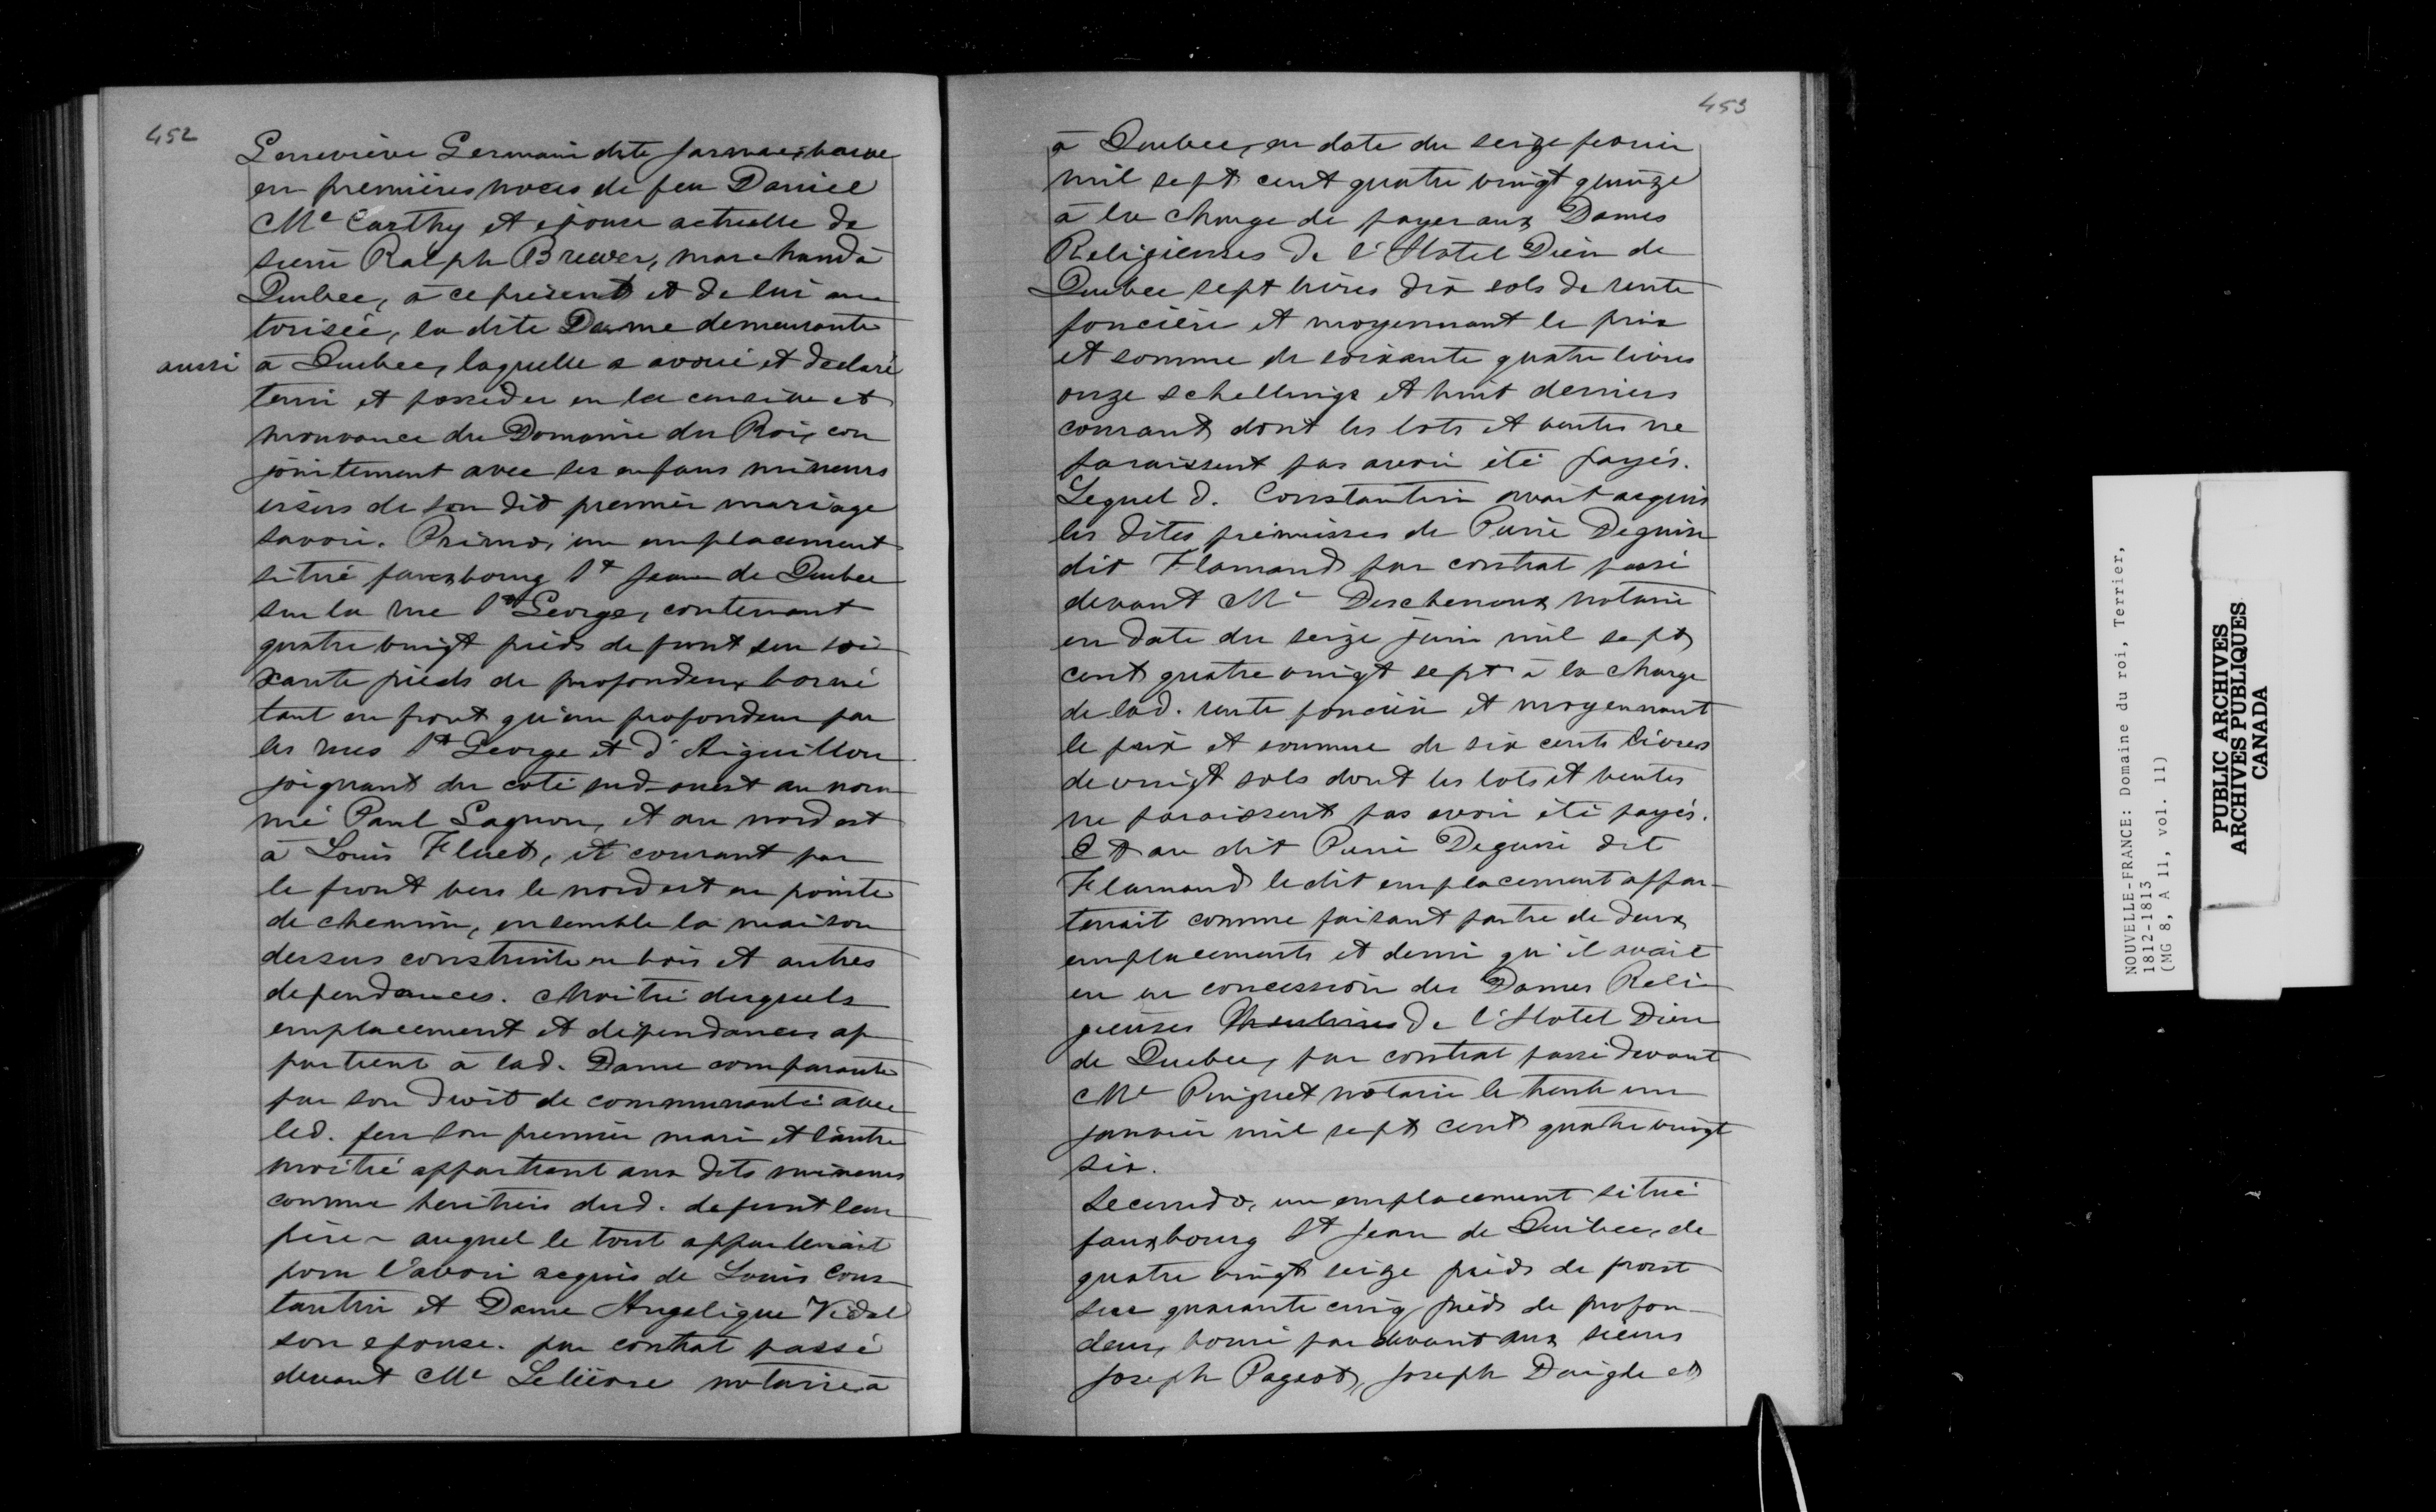 452
Genevieve Germain dite
en premières noces de feu Daniel
Mc Carthy et epouse actuelle de
sieur Ralph Brewer, marchand à
Quebec, à ce présent et de lui au
torisée, la dite Dame demeurante
aussi à Quebec, laquelle a avoué et declaré
tenir et posseder en la censive et
mouvance du Domaine du Roi, con
jointement avec ses enfans mineurs
issus de son dit premier mariage
savoir. Primo, un emplacement
situé fauxbourg St Jean de Quebec
sur la rue St George, contenant
quatre vingt pieds de front sur soi
xante pieds de profondeur borné
tant en front qu'en profondeur par
les rues St George et d'Aiguillon
joignant du coté sud-ouest au nom
mé Paul Gagnon, et au nord est
à Louis Fluet, et courant par
le front vers le nord est en pointe
de chemin, ensemble la maison
dessus construite en bois et autres
dependances. Moitié desquels
emplacement et dépendances ap
partient à lad. Dame comparante
par son droit de communauté avec
led. feu son premier mari et l'autre
moitié appartient aux dits mineurs
comme heritiers dud. defunt leur
père - auquel le tout appartenait
pour l'avoir acquis de Louis Cons
tantin et Dame Angelique Vidal
son epouse. par contrat passé
devant Me Lelièvre notaire à
453
à Quebec, en date du seize fevrier
mil sept cent quatre vingt quinze
à la charge de payer aux Dames
Religieuses de l'Hotel Dieu de
Quebec sept livres dix sols de rente
foncière et moyennant le prix
et somme de soixante quatre livres
onze schellings et huit derniers
courant dont les lots et ventes ne
paraissent pas avoir été payés.
Lequel d. Constantin avait acquis
les dites prémisses de Pierre Deguise
dit Flamand par contrat passé
devant Me Deschenaux notaire
en date du seize juin mil sept
cent quatre vingt sept à la charge
de lad. rente foncière et moyennant
le prix et somme de six cents livres
de vingt sols dont les lots et ventes
ne paraissent pas avoir été payés.
Et au dit Pierre Deguise dit
Flamand le dit emplacement appar-
tenait comme faisant partie de deux
emplacements et demi qu'il avait
eu en concession des Dames Reli
gieuses de l'Hotel Dieu
de Quebec, par contrat passé devant
Me Pinguet notaire le trente un
janvier mil sept cent quatre vingt
six.
Secundo, un emplacement situé
fauxbourg St Jean de Quebec, de
quatre vingt seize pieds de front
sur quarante cinq pieds de profon-
deur, borné par devant aux sieurs
Joseph Pageot, Joseph Daigle et
NOUVELLE-FRANCE: Domaine du roi, Terrier,
1812-1813
(MG 8, A 11, vol. 11)
PUBLIC ARCHIVES
ARCHIVES PUBLIQUES
CANADA